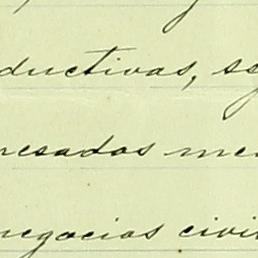 ductivas, se
resados me
negocios civi